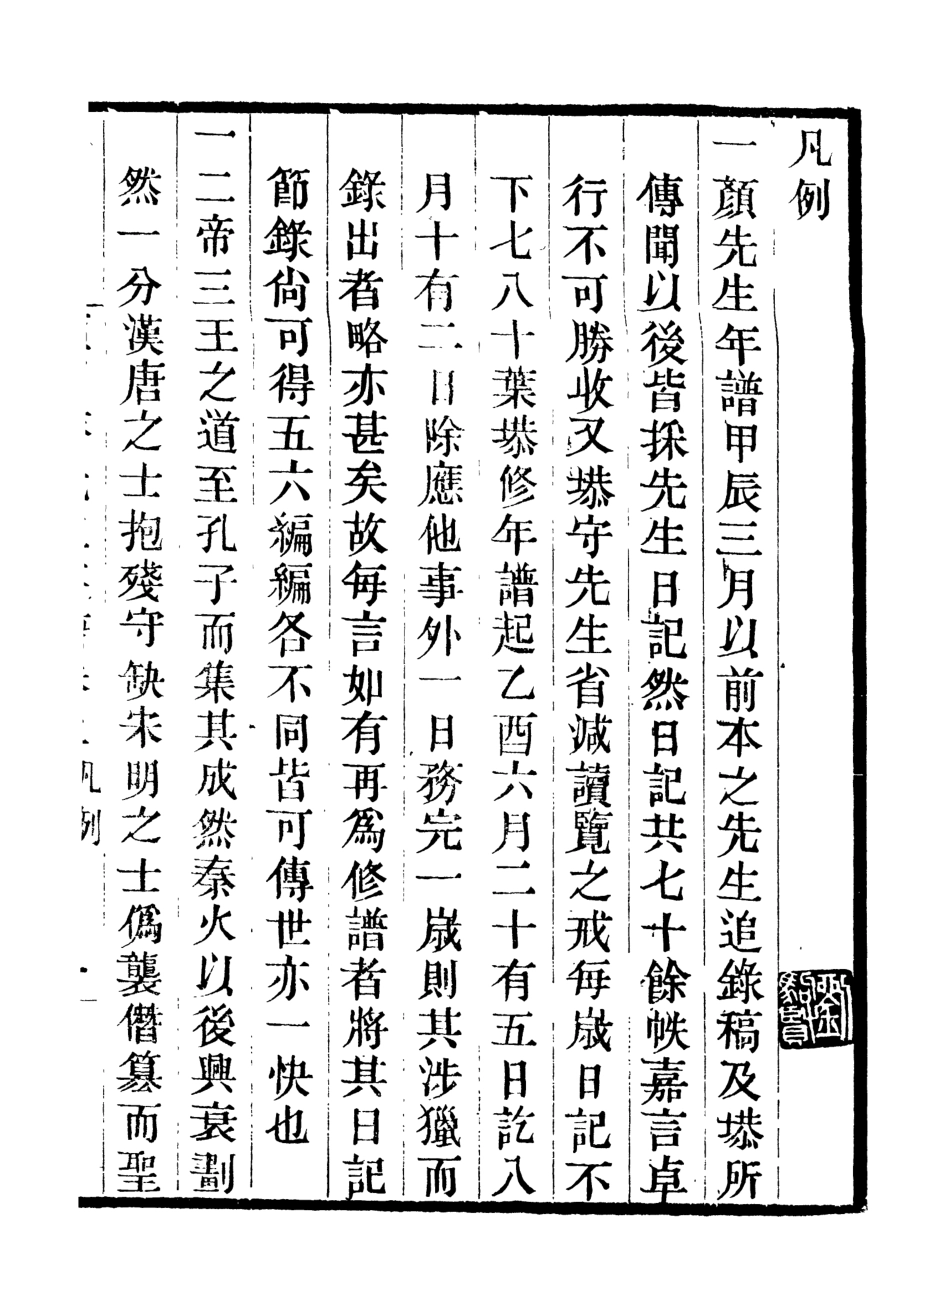 凡例
一顏先生年譜甲辰三月以前本之先生追錄稿及塨所
傳聞以後皆採先生日記然日記共七十餘帙嘉言卓
行不可勝收又塨守先生省減讀覽之戒每歲日記不
下七八十葉塨修年譜起乙酉六月二十有五日訖八
月十有二日除應他事外一日務完一歲則其涉獵而
錄出者略亦甚矣故每言如有再爲修譜者將其日記
節錄尙可得五六編編各不同皆可傳世亦一快也
一二帝三王之道至孔子而集其成然秦火以後興衰劃
然一分漢唐之士抱殘守缺宋明之士僞襲僭篡而聖
凡例